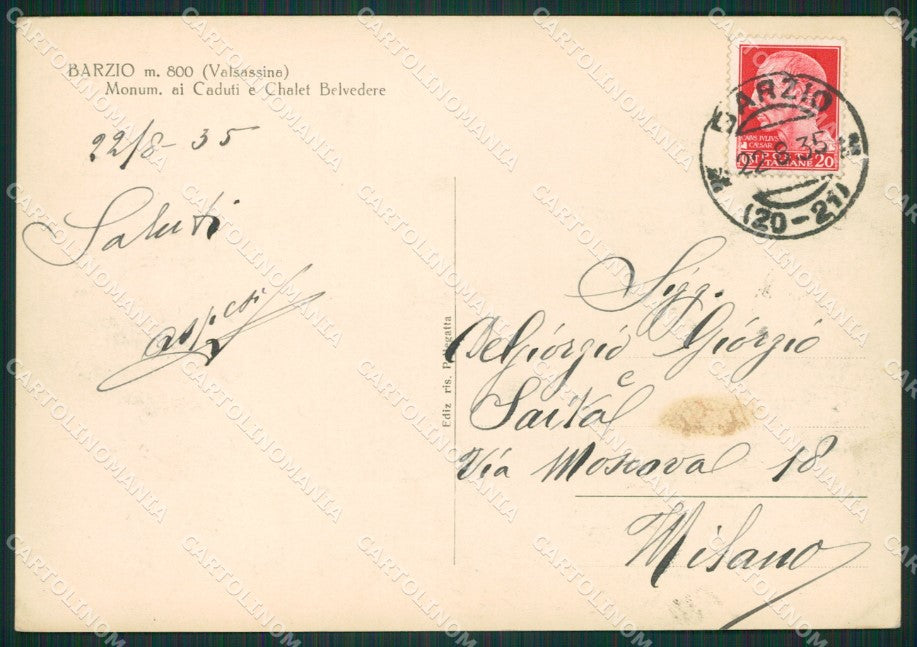 BARZIO m. 800 (Valsassina)
Monum. ai Caduti e Chalet Belvedere
22/8-35
Saluti
Ediz ris.
BARZIO
22.8.35
(20-21)
CAESAR
POSTE ITALIANE 20
Sigg.
DeGiorgio Giorgio
e
Via Moscova 18
Milano
CARTOLINOMANIA